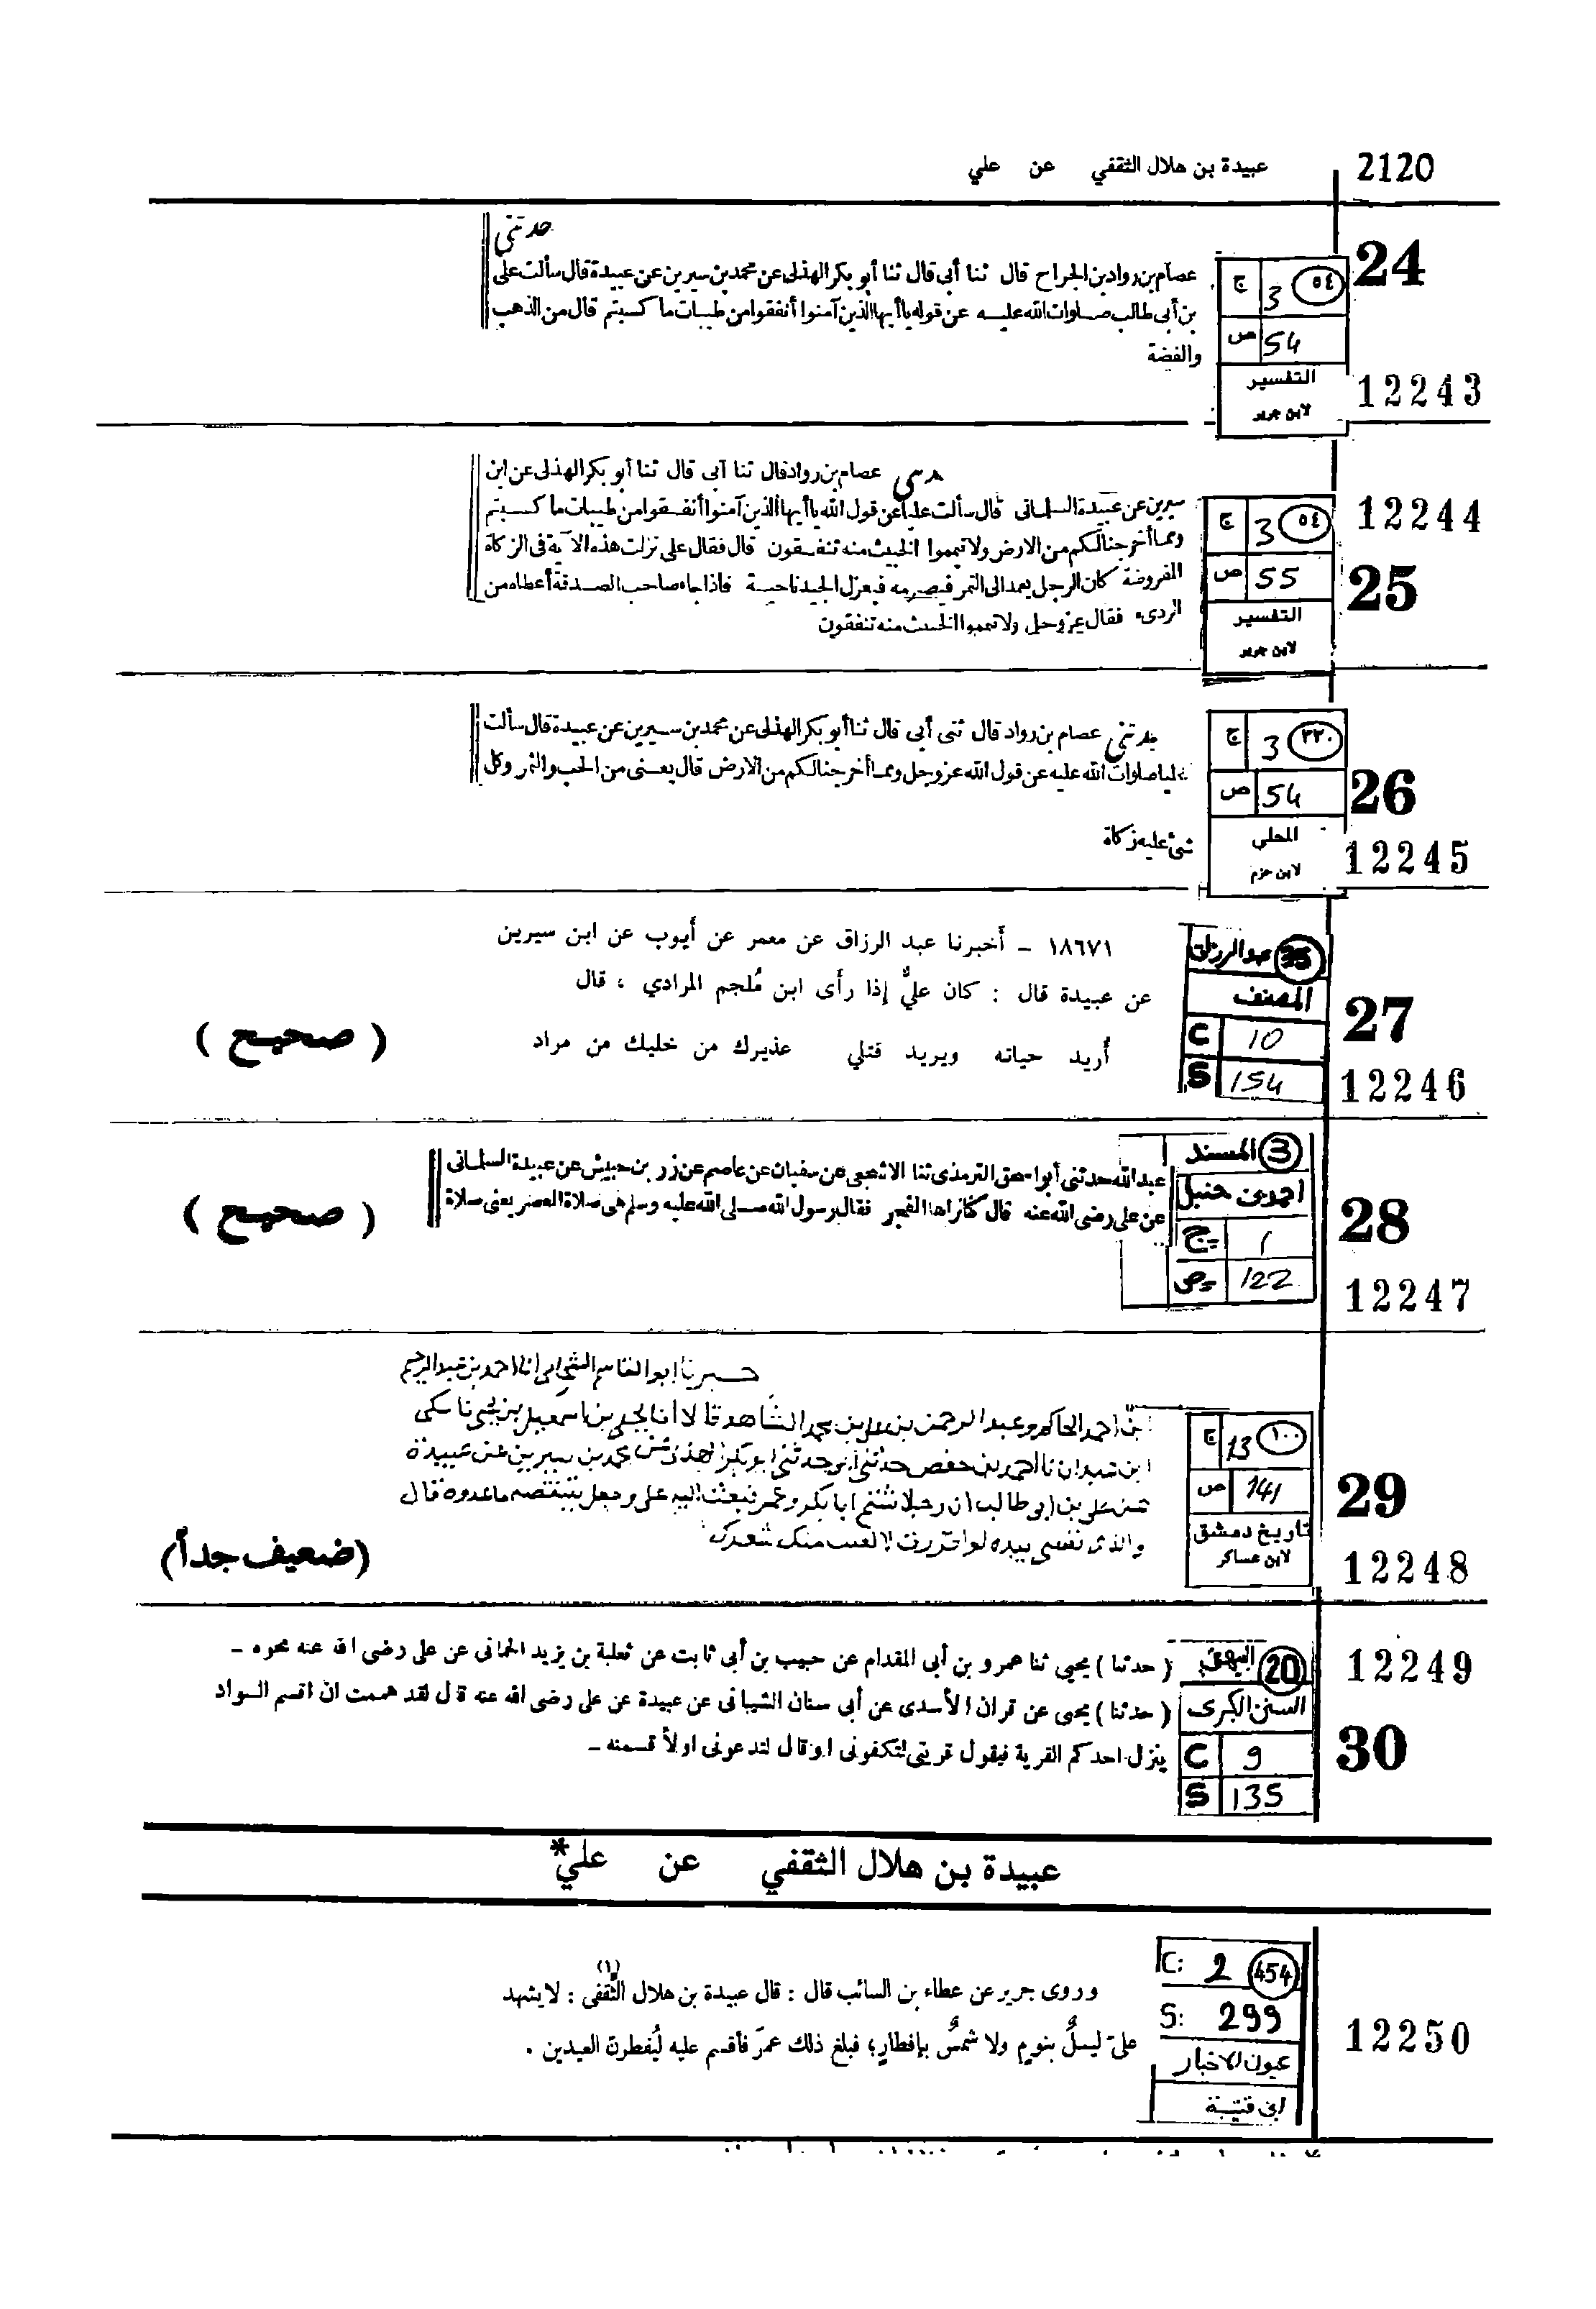 2120
عبيدة بن هلال الثقفي عن علي
24
حدثني
عصام بن رواد بن الجراح قال ثنا أبي قال ثنا أبو بكر الهذلى عن محمد بن سيرين عن عبيدة قال سألت على
بن أبى طالب صلوات الله عليه عن قوله يا أيها الذين آمنوا أنفقوا من طيبات ما كسبتم قال من الذهب
والفضة
ج 3 ٥٤
ص 54
التفسير
لابن جرير
12243
12244
عصام بن رواد قال ثنا أبى قال ثنا أبو بكر الهذلى عن ابن
سيرين عن عبيدة السلمانى قال سألت عليا عن قول الله يا أيها الذين آمنوا أنفقوا من طيبات ما كسبتم
ومما أخرجنا لكم من الارض ولا تيمموا الخبيث منه تنفقون قال فقال على نزلت هذه الآية فى الزكاة
المفروضة كان الرجل يعمد الى التمر فيصرمه فيعزل الجيد ناحية فاذا جاء صاحب الصدقة أعطاه من
الردىء فقال عز وجل ولا تيمموا الخبيث منه تنفقون
ج 3 ٥٤
ص 55
التفسير
لابن جرير
25
حدثني عصام بن رواد قال ثنى أبى قال ثنا أبو بكر الهذلى عن محمد بن سيرين عن عبيدة قال سألت
عليا صلوات الله عليه عن قول الله عز وجل ومما أخرجنا لكم من الارض قال يعنى من الحب والثمر وكل
شئ عليه زكاة
ج 3 ٢٢٠
ص 54
المحلي
لابن حزم
26
12245
١٨٦٧١ - أخبرنا عبد الرزاق عن معمر عن أيوب عن ابن سيرين
عن عبيدة قال : كان عليٌّ إذا رأى ابن مُلجم المرادي ، قال
أريد حياته ويريد قتلي عذيرك من خليلك من مراد
( صحيح )
35 عبد الرزاق
المصنف
C 10
S 154
27
12246
عبد الله حدثنى أبو اسحق الترمذى ثنا الاشجعى عن سفيان عن عاصم عن زر بن حبيش عن عبيدة السلمانى
عن على رضى الله عنه قال كنا نراها الفجر فقال رسول الله صلى الله عليه وسلم هى صلاة العصر يعنى صلاة
( صحيح )
3 المسند
احمد بن حنبل
ج 1
ص 122
28
12247
ابو القاسم انا احمد بن عبد الرحيم
ابن احمد الحاكم وعبد الرحمن بن علي بن محمد الشاهد قالا انا يحيى بن اسمعيل بن يحيى نا مكى
ابن عبدان نا احمد بن حفص حدثنى ابى حدثنى ابو بكر الهذلى عن محمد بن سيرين عن عبيدة
عن على بن ابى طالب ان رجلا شتم ابا بكر وعمر فبعث اليه على وجعل ينتقصهما عنده قال
والذى نفسى بيده لو اقررت لالقيت منك شعرك
(ضعيف جداً)
ج 13 ١٠٠
ص 141
تاريخ دمشق
لابن عساكر
29
12248
12249
( حدثنا ) يحيى ثنا عمرو بن أبى المقدام عن حبيب بن أبى ثابت عن ثعلبة بن يزيد الحمانى عن على رضى الله عنه نحوه -
( حدثنا ) يحيى عن قران الأسدى عن أبى سنان الشيبانى عن عبيدة عن على رضى الله عنه قال لقد هممت ان اقسم السواد
ينزل احدكم القرية فيقول قريتى لتكفونى او قال لتدعونى اولأقسمنه -
20 البيهقي
السنن الكبرى
C 9
S 135
30
عبيدة بن هلال الثقفي عن علي*
وروى جرير عن عطاء بن السائب قال : قال عبيدة بن هلال الثَّقفى (١) : لا يشهد
علىّ ليلٌ بنومٍ ولا شمسٌ بإفطارٍ؛ فبلغ ذلك عمرَ فأقسم عليه ليُفطرنّ العيدين .
C: 2 454
S: 299
عيون الاخبار
ابن قتيبة
12250